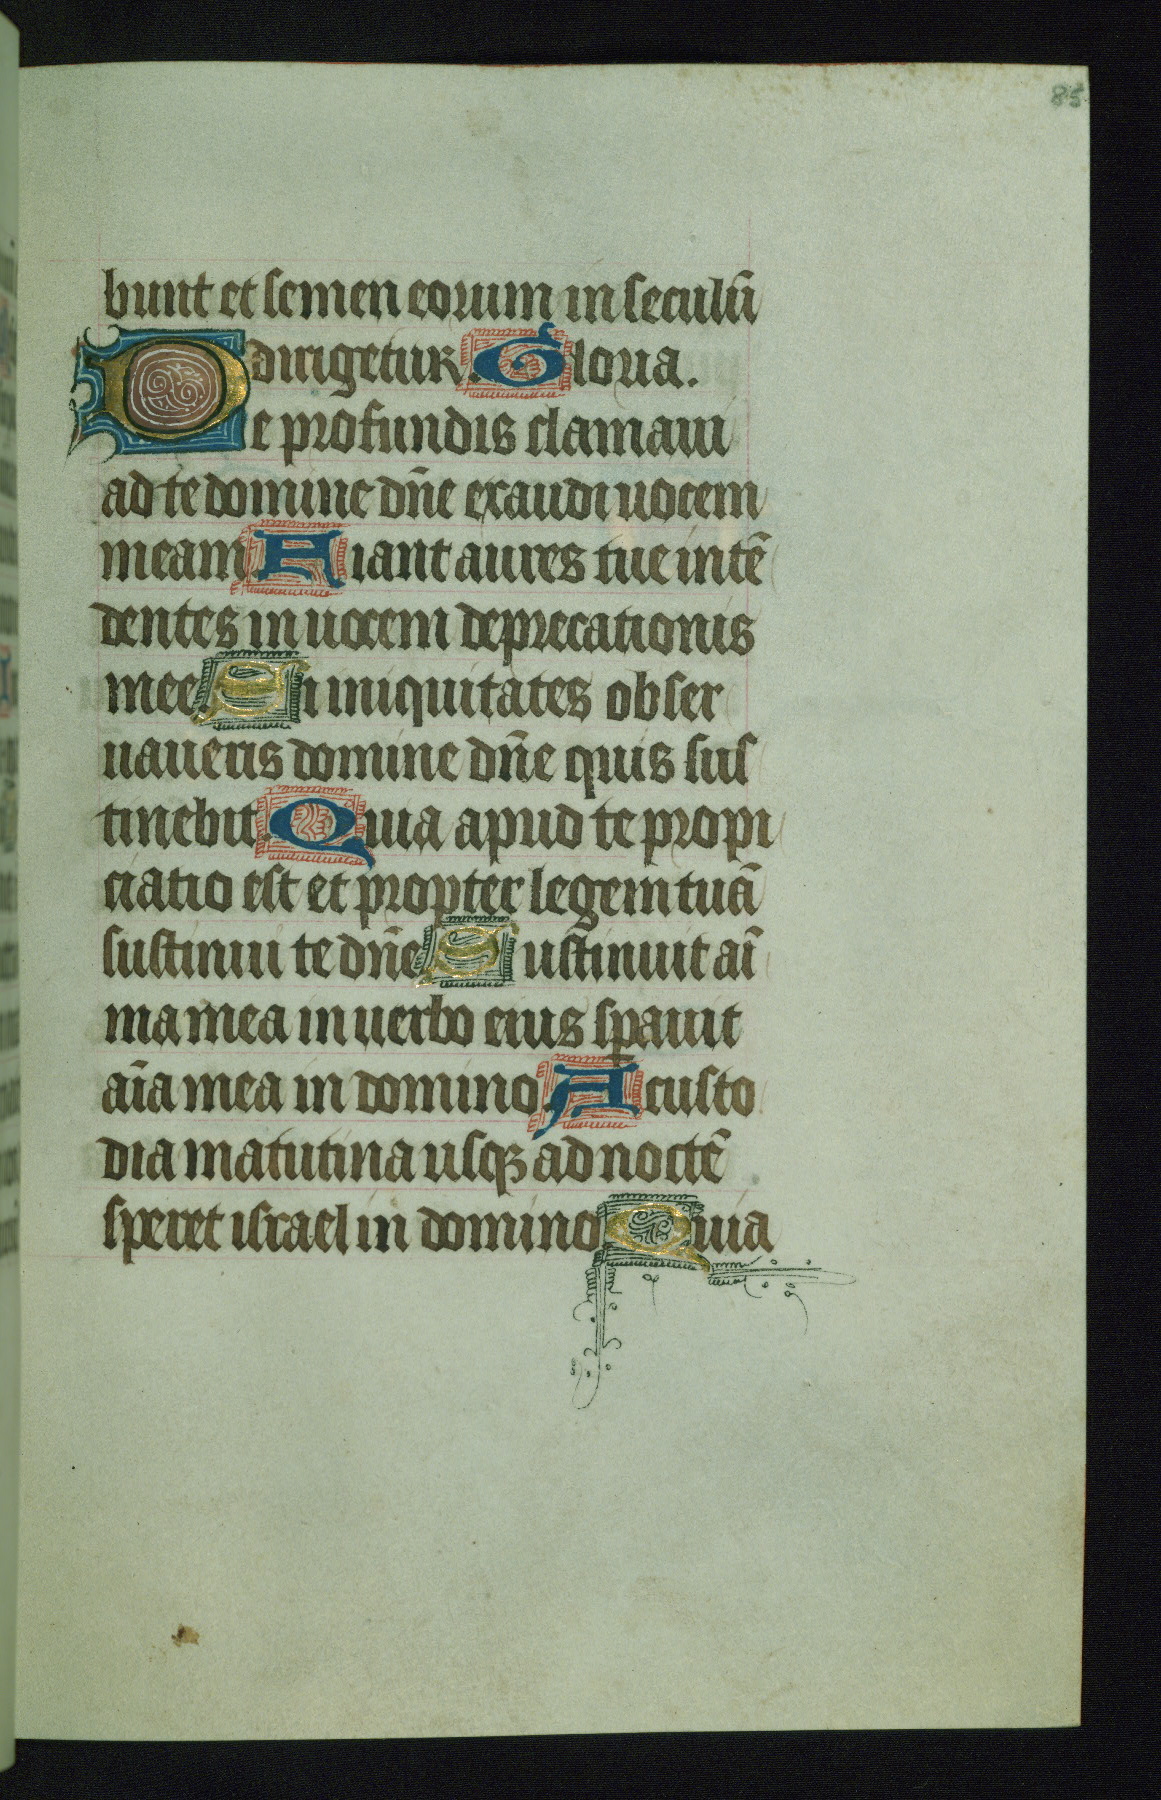 85
bunt et semen eorum in seculū
dirigetur. Gloria.
De profundis clamaui
ad te domine dn̄e exaudi uocem
meam. Fiant aures tue intē
dentes in uocem deprecationis
mee. Si iniquitates obser
uaueris domine dn̄e quis sus
tinebit. Quia apud te propi
ciatio est et propter legem tuā
sustinui te dn̄e Sustinuit ai̅
ma mea in uerbo eius sꝑauit
ai̅a mea in domino. A custo
dia matutina usqꝫ ad noctē
speret israel in domino Quia